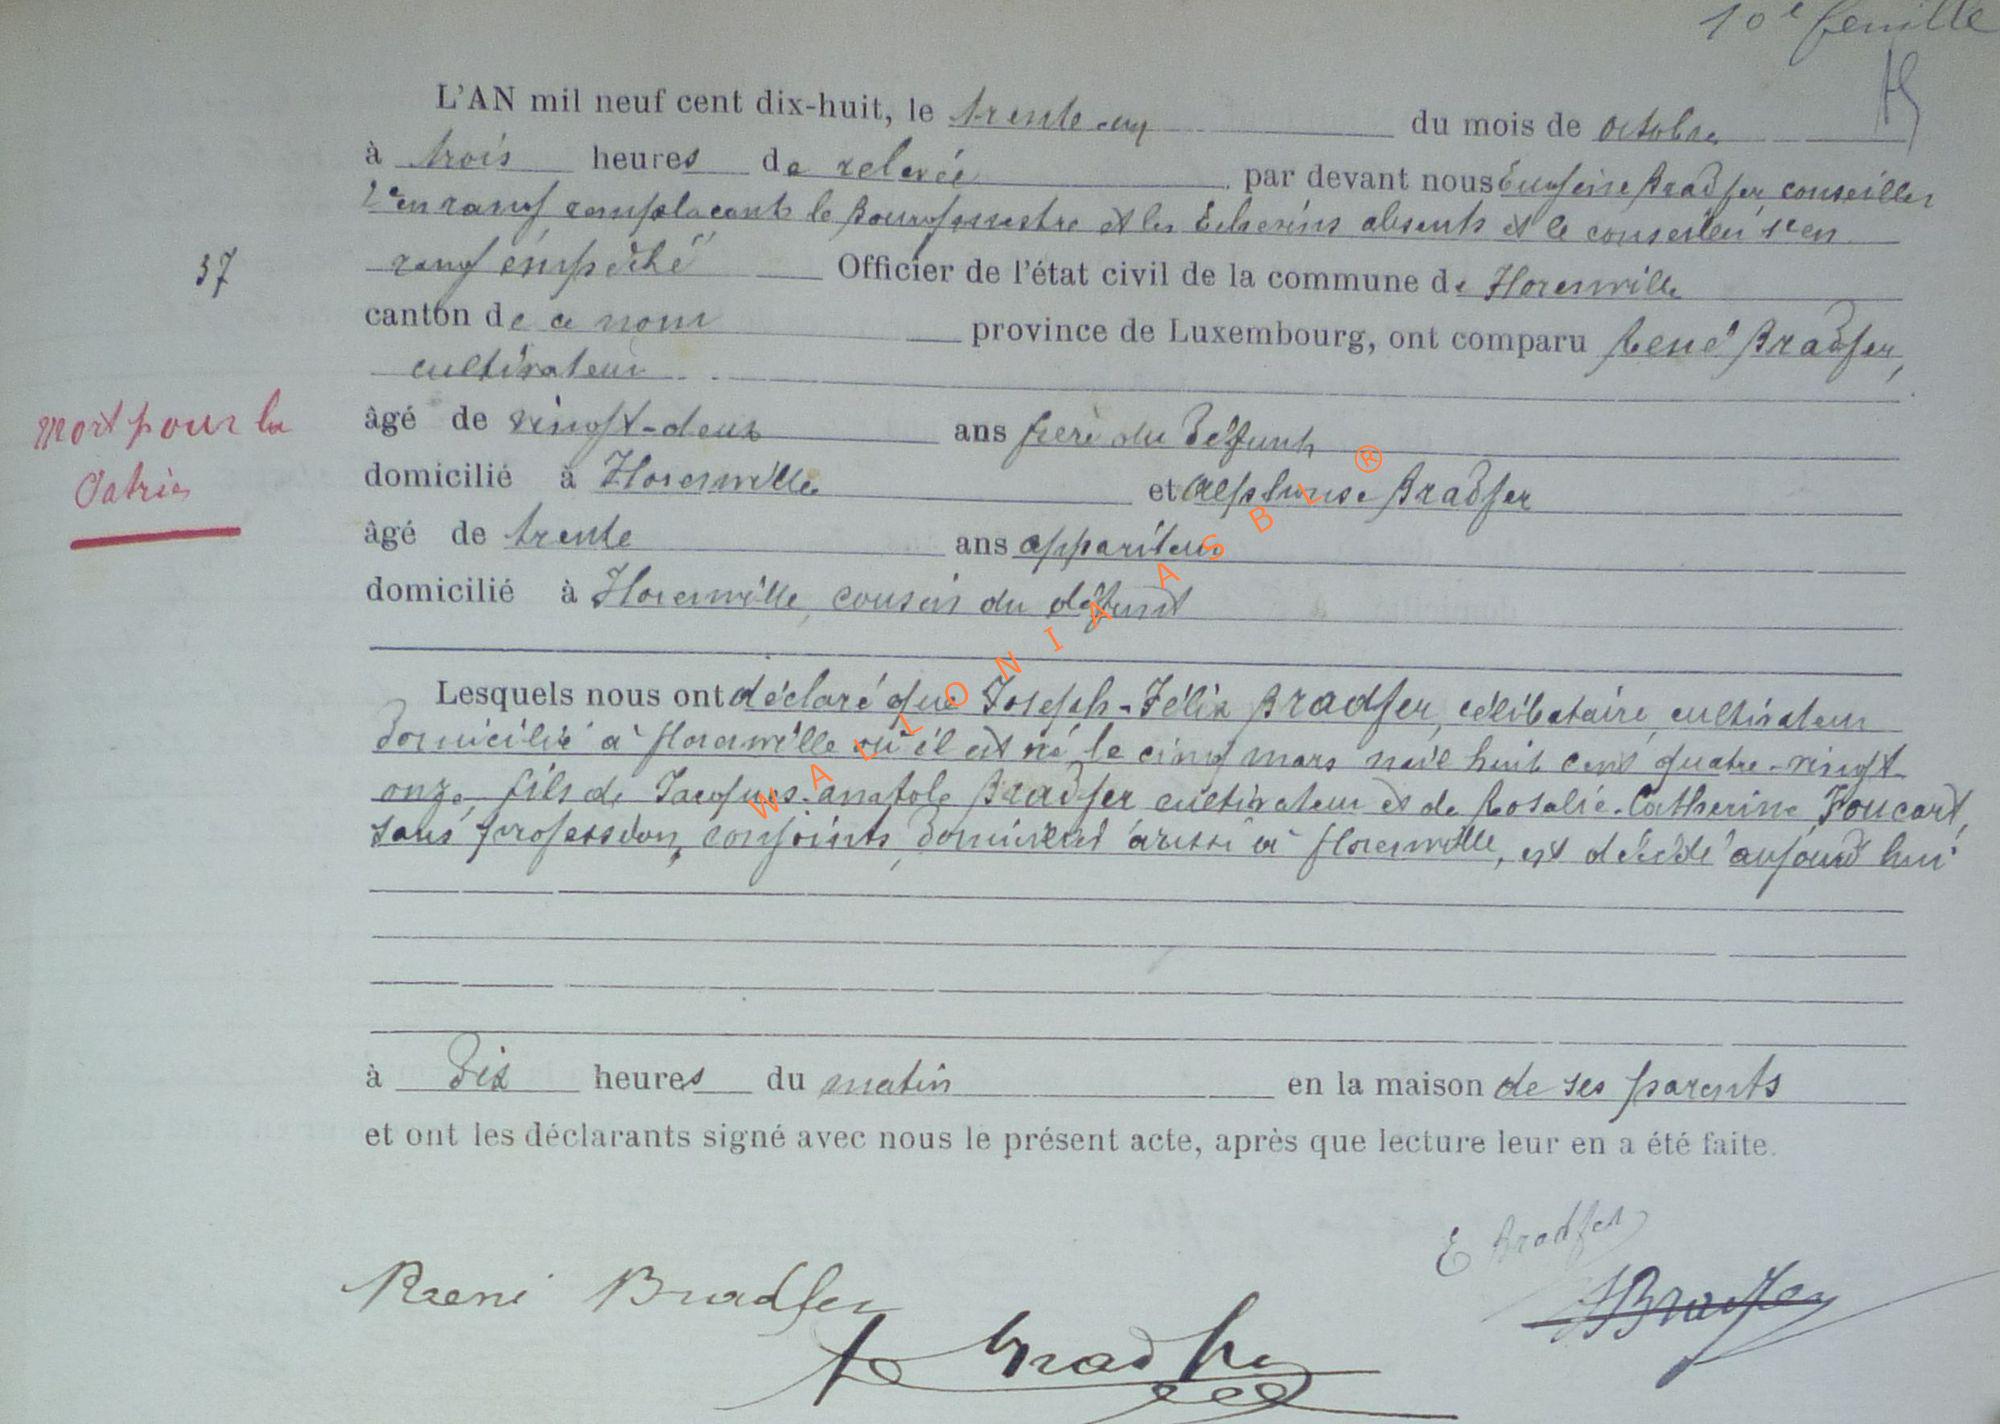 10e feuille
L'AN mil neuf cent dix-huit, le trente un du mois de octobre
à trois heures de relevée par devant nous Eugène Bradfer conseiller
2e en rang remplaçant le Bourgmestre et les Echevins absents et le conseiller 1er en
37
rang empêché Officier de l'état civil de la commune de Florenville
canton de ce nom province de Luxembourg, ont comparu René Bradfer,
cultivateur
Mort pour la
Patrie
âgé de vingt-deux ans frère du défunt
domicilié à Florenville et Alphonse Bradfer
âgé de trente ans appariteur
domicilié à Florenville, cousin du défunt
Lesquels nous ont déclaré que Joseph-Félix Bradfer, célibataire, cultivateur
domicilié à Florenville où il est né le cinq mars mil huit cent quatre-vingt
onze, fils de Jacques-Anatole Bradfer cultivateur et de Rosalie-Catherine Foucart,
sans profession, conjoints, domiciliés aussi à Florenville, est décédé aujourd'hui
à dix heures du matin en la maison de ses parents
et ont les déclarants signé avec nous le présent acte, après que lecture leur en a été faite.
E Bradfer
René Bradfer
Bradfer
Bradfer
WALLONIA ASBL ®